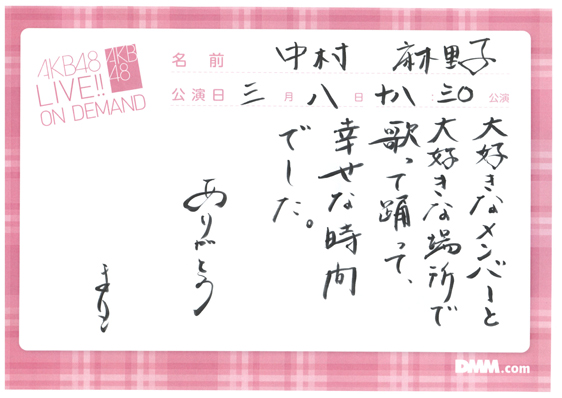 AKB48
LIVE!!
ON DEMAND
AKB
48
名前 中村 麻里子
公演日 三 月 八 日 十八 : 三〇 公演
大好きなメンバーと
大好きな場所で
歌って踊って、
幸せな時間
でした。
ありがとう
まりこ
DMM.com